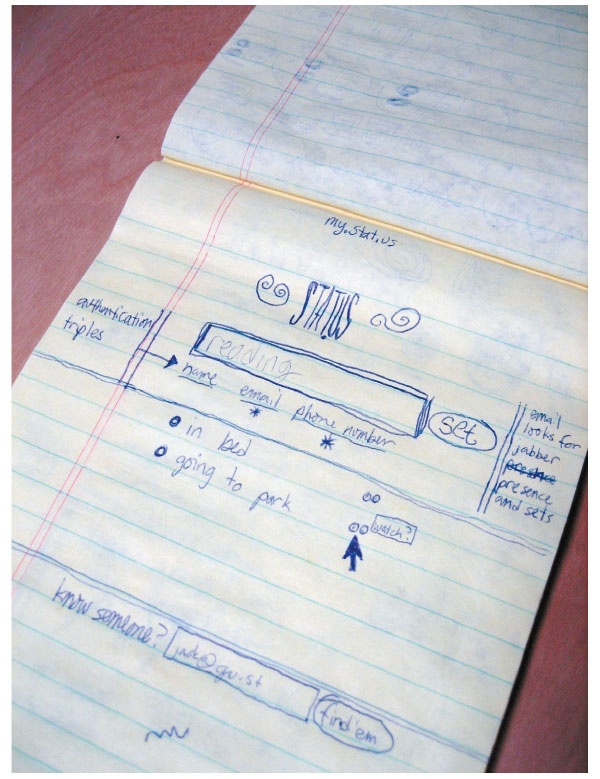 my.stat.us
STAT.US
authentication
triples
reading
name
email
phone number
set
email
looks for
jabber
presence
and sets
in bed
going to park
watch?
know someone?
find'em